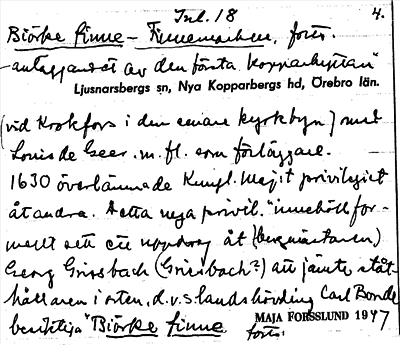 Inl. 18 4.
Björke finne – Finnemarken, forts.
– anläggandet av den första kopparhyttan"
Ljusnarsbergs sn, Nya Kopparbergs hd, Örebro län.
(vid Krokfors i den senare kyrkbyn) med
Louis de Geer m. fl. som förläggare.
1630 överlämnade Kungl. Maj:t privilegiet
åt andra. Detta nya privil. "innehöll for-
mellt sett ett uppdrag åt (bergmästaren)
Georg Griesbach (Griisbach?) att jämte ståt-
hållaren i orten, d.v.s landshövding Carl Bonde
besiktiga "Björke finne
MAJA FORSSLUND 1947
forts.